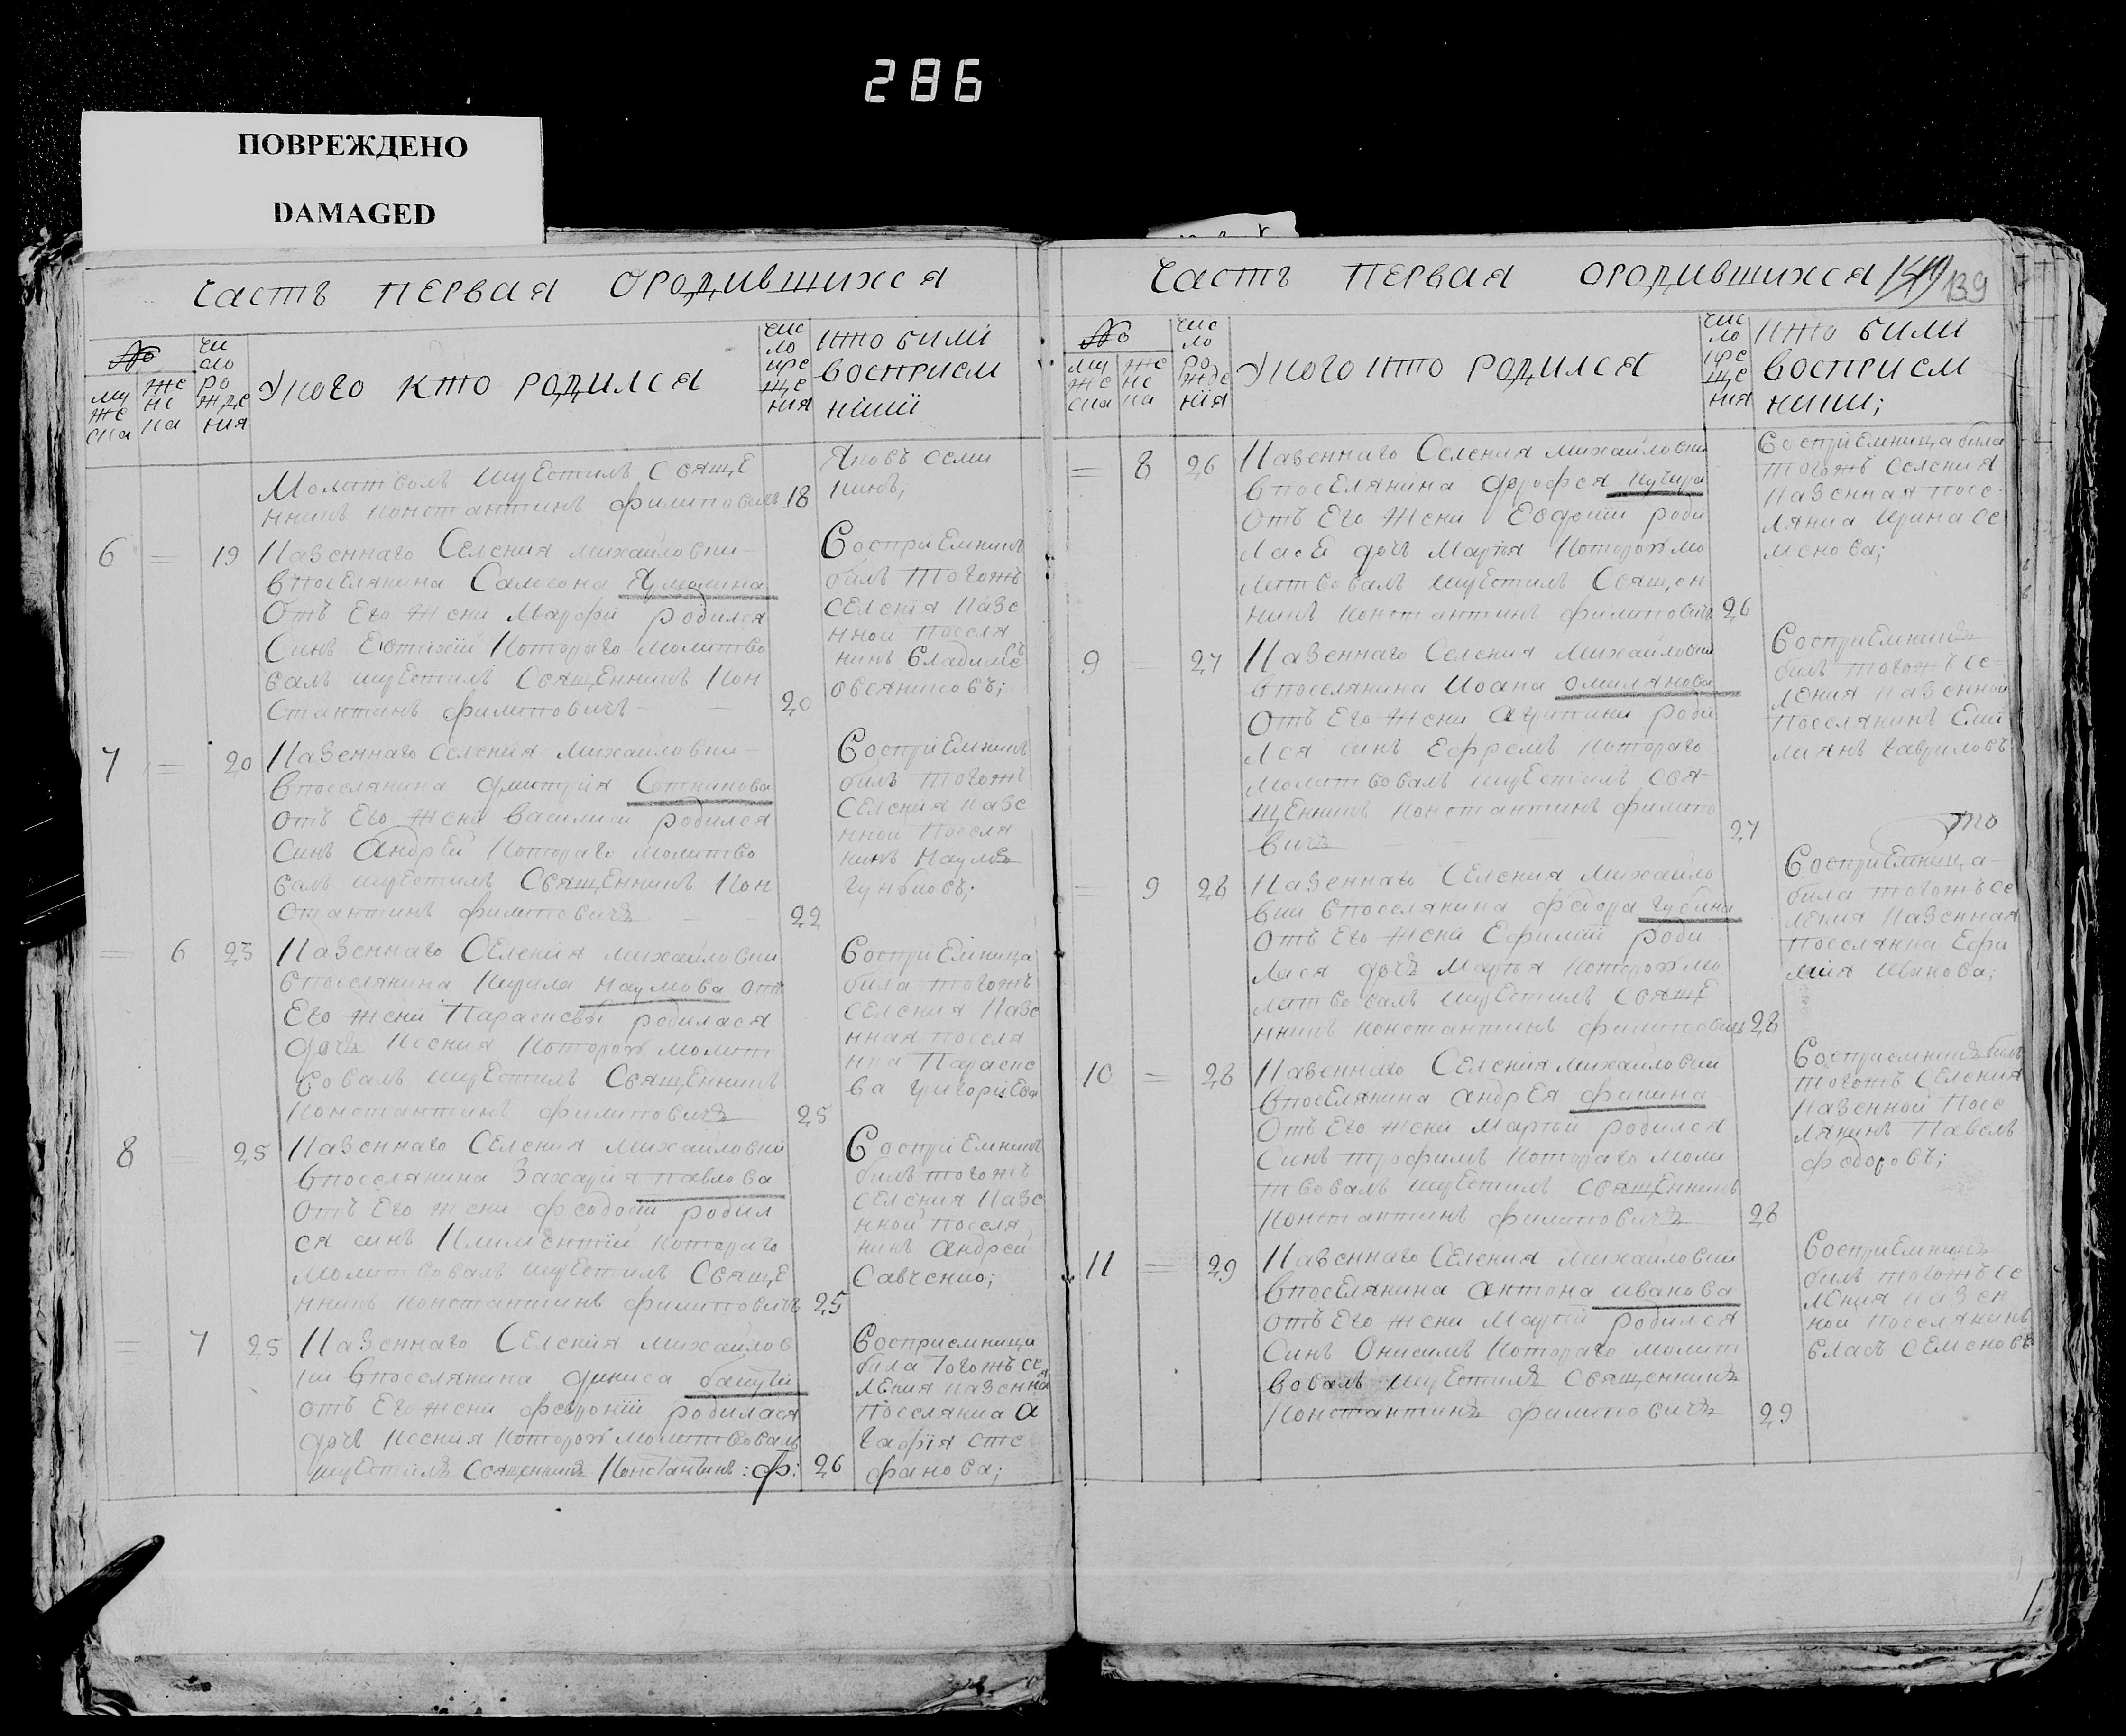 286
ПОВРЕЖДЕНО
DAMAGED
Часть первая ородившихся
№
му
же
ска
же
нс
ка
чи
сло
ро
жде
ния
Укого кто родился
чис
ло
кре
ще
ния
кто били
восприем
ники
Молитвовалъ икрестилъ Свяще
нникъ Константинъ филиповичъ 18
Яковъ осми
нинъ,
6 = 19 Казеннаго Селения михайловки
впоселянина Самсона
Отъ Его жени Марфи родился
Синъ Евтихій Котораго молитво
валъ икрестилъ Священникъ Кон
стантинъ филиповичъ 20
Восприемникъ
билъ тогожъ
селения казе
нной поселя
нинъ Владимѣръ
овсяниковъ;
7 = 20 Казеннаго селения михайловки
впоселянина дмитрия Сотникова
отъ Его жени василиси родился
Синъ Андрей Котораго молитво
валъ икрестилъ Священникъ Кон
стантинъ филиповичъ 22
Восприемникъ
билъ тогожъ
селения казе
нной поселя
нинъ Наумъ
= 6 25 Казеннаго Селения михайловки
впоселянина Кирила Наумова отъ
Его жени Параскевы родилася
дочъ Ксения Которою молит
вовалъ икрестилъ Священникъ
Константинъ филиповичъ 25
Восприемница
била тогожъ
селения казе
нная поселя
нка Параске
ва григориева
8 = 25 Казеннаго Селения михайловки
впоселянина Захария павлова
отъ Его жени феодосіи родил
ся синъ Климентій Котораго
молитвовалъ икрестилъ Свяще
нникъ Константинъ филиповичъ 25
Восприемникъ
билъ тогожъ
селения казе
нной поселя
нинъ андрей
Савченко;
= 7 25 Казеннаго Селения михайлов
ки впоселянина дениса
отъ Его жени февроніи родилася
дочъ Ксения Которою молитвовалъ
икрестилъ Священникъ Константинъ: ф: 26
Восприемница
била тогожъ се
ления казенная
поселянка а
гафія сте
фанова;
Часть первая ородившихся 139
№
му
же
ска
же
нс
ка
чис
ло
ро
жде
нія
Укого кто родился
чис
ло
кре
ще
ния
кто били
восприем
ники;
= 8 26 Казеннаго Селения михайловки
впоселянина дорофея
Отъ Его жени Евдокіи роди
ласЕ дочъ Марѳа Которою мо
литвовалъ икрестилъ Священ
никъ Константинъ филиповичъ 26
Восприемница била
тогожъ селения
казенная посе
лянка Ирина се
менова;
9 = 27 Казеннаго Селения михайловки
впоселянина Иоана омилянова
Отъ Его жени агрипини роди
лся синъ Ефремъ Котораго
молитвовалъ икрестилъ Свя
щенникъ Константинъ филипо
вичъ 27
Восприемникъ
билъ тогожъ се
ления казенной
поселянинъ Еми
лиянъ гавриловъ
то
= 9 28 Казеннаго Селения михайло
вки впоселянина федора губина
отъ Его жени Ефиміи роди
лася дочъ Марѳа Которою мо
литвовалъ икрестилъ Свяще
нникъ Константинъ филиповичъ 28
Восприемница
била тогожъ се
ления казенная
поселянка Ефи
мия Иванова;
10 = 28 Казеннаго Селения михайловки
впоселянина андрея
Отъ Его жени Марѳи родился
Синъ трофимъ Котораго моли
твовалъ икрестилъ священникъ
Константинъ филиповичъ 28
Восприемникъ билъ
тогожъ селения
казенной посе
лянинъ Павелъ
федоровъ;
11 = 29 Казеннаго Селения михайловки
впоселянина антона иванова
отъ Его жени Марѳи родился
Синъ Онисимъ Котораго молит
вовалъ икрестилъ священникъ
Константинъ филиповичъ 29
Восприемникъ
билъ тогожъ се
ления казен
ной поселянинъ
власъ семеновъ